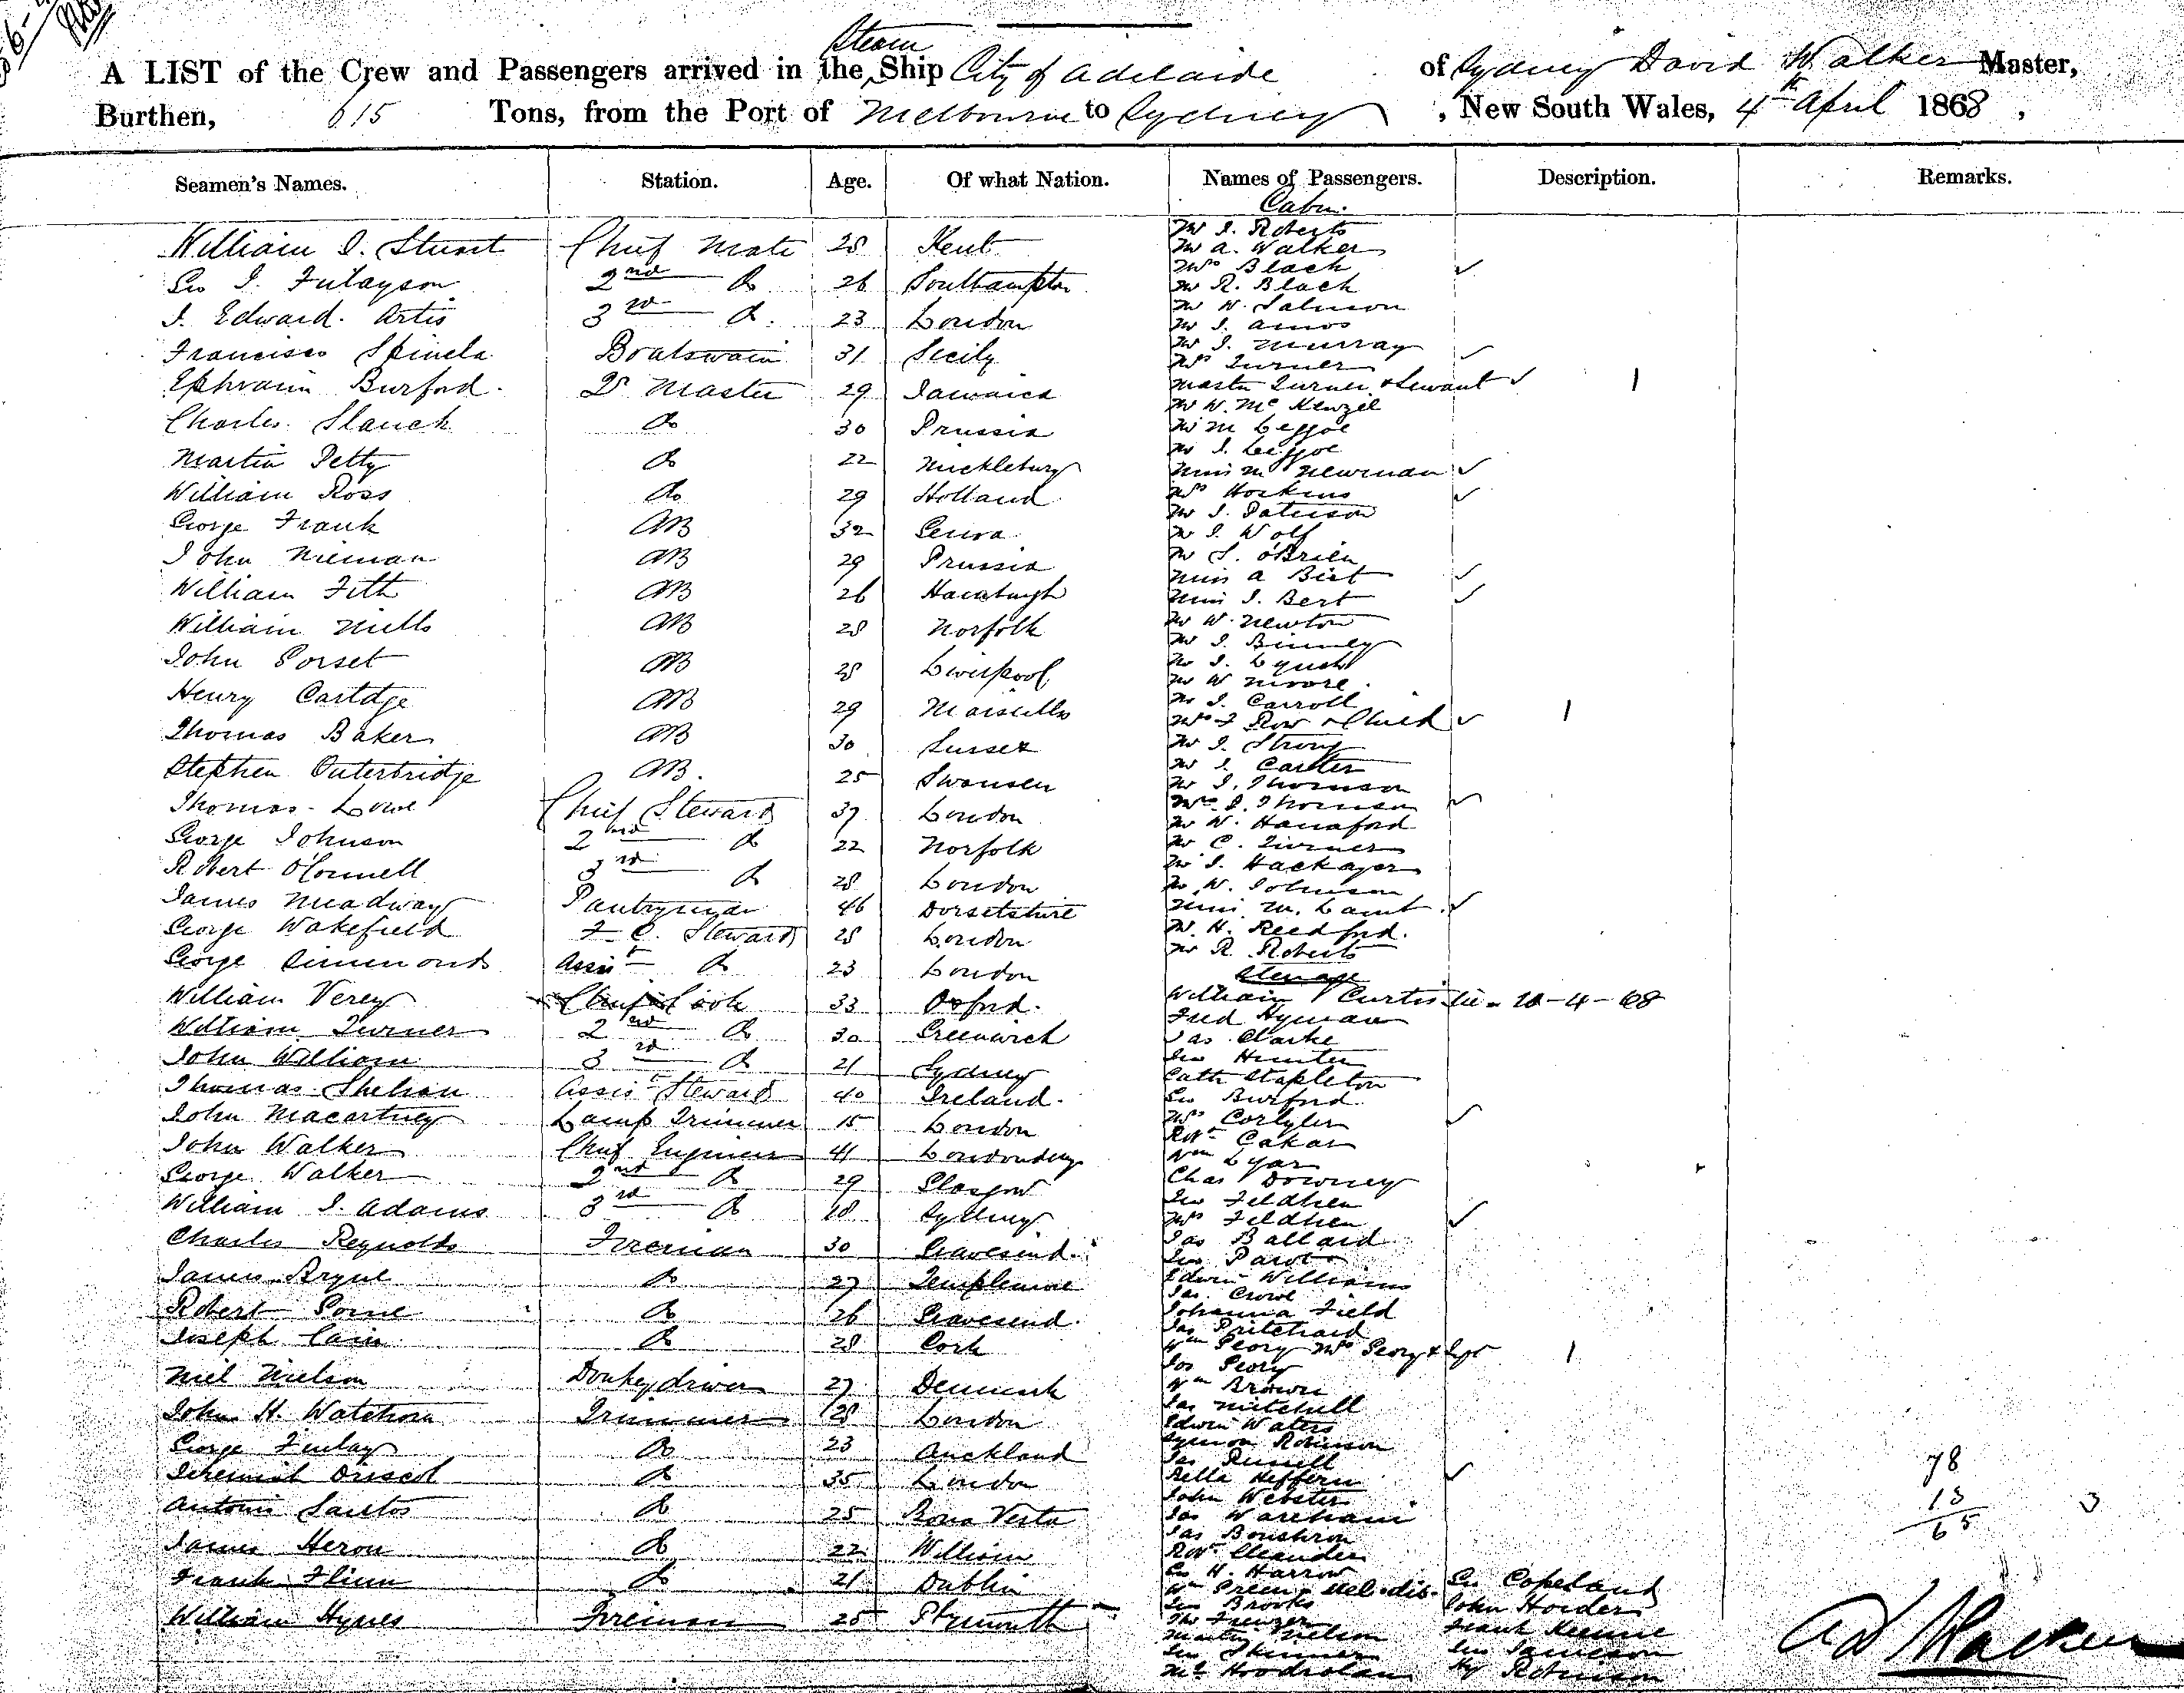 Steam
A LIST of the Crew and Passengers arrived in the Ship City of Adelaide of Sydney David Walker Master,
Burthen, 615 Tons, from the Port of Melbourne to Sydney, New South Wales, 4th April 1868,
Seamen's Names. Station. Age. Of what Nation. Names of Passengers. Description. Remarks.
Cabin.
William J. Stuart Chief Mate 28 Kent
Geo J. Finlayson 2nd Do 26 Southampton
J. Edward Artis 3rd Do 23 London
Francisco Spinela Boatswain 31 Sicily
Ephraim Burford Qr Master 29 Jamaica
Charles Slanch Do 30 Prussia
Martin Petty Do 22 Mickleburg
William Ross Do 29 Holland
George Frank AB 32 Genoa
John Nieman AB 29 Prussia
William Fith AB 26
William Mills AB 28 Norfolk
John Dorset AB 28 Liverpool
Henry Cartdge AB 29 Marseilles
Thomas Baker AB 30 Sussex
Stephen Outerbridge AB 25 Swansea
Thomas Lowe Chief Steward 37 London
George Johnson 2nd Do 22 Norfolk
Robert O'Connell 3rd Do 28 London
James Meadway Pantryman 46 Dorsetshire
George Wakefield F. C. Steward 28 London
George Simmonds Assist Do 23 London
William Verey Chief Cook 33 Oxford
William Turner 2nd Do 30 Greenwich
John William 3rd Do 21 Sydney
Thomas Shehan Assist Steward 40 Ireland
John Macartney Lamp Trimmer 15 London
John Walker Chief Engineer 41 Londonderry
George Walker 2nd Do 29 Glasgow
William J. Adams 3rd Do 28 Sydney
Charles Reynolds Fireman 30 Gravesend
James Bryne Do 27 Templemore
Robert Do 26 Gravesend
Joseph Cain Do 28 Cork
Niel Nielson Donkey driver 27 Denmark
John H. Watchorn Trimmer 28 London
George Finlay Do 23 Auckland
Jeremiah Driscol Do 35 London
Antoni Santos Do 25 Bona Vesta
James Heron Do 22 William
Frank Flinn Do 21 Dublin
William Hynes Fireman 25 Plymouth
Mr J. Roberts
Mr A. Walker
Mrs Black
Mr R. Black
Mr W. Salmon
Mr J. Amos
Mr J. Murray
Mrs Turner
Master Turner & Servant 1
Mr W. McKenzie
Mr M Leggoe
Mr J. Leggoe
Miss M Newman
Mrs Hoskins
Mr J. Paterson
Mr J. Wolf
Mr S. O'Brien
Miss A Bert
Miss J. Bert
Mr W. Newton
Mr J. Binney
Mr J. Lynch
Mr W Moore
Mr J. Carroll
Mrs F Row & Child 1
Mr J. Strong
Mr J. Carter
Mr J. Thomson
Mrs J. Thomson
Mr W. Hannaford
Mr C. Turner
Mr J.
Mr W. Johnson
Miss M. Lamb
Mr H. Reedford
Mr R. Roberts
Steerage
William Curtis 10-4-68
Fred Hyman
Jas Clarke
Geo Hunter
Cath Stapleton
Geo Burford
Mrs
Robt
Wm Lyar
Chas Downey
Geo Feldhen
Mrs Feldhen
Jas Ballard
Geo
Edwin Williams
Jas Crowe
Johanna Field
Jas Pritchard
Wm Geory Mrs Geory & Inft 1
Jos Geory
Wm Brown
Jas Mitchell
Edwin Waters
Symon Robinson
Jas Russell
Bella Heffern
John Webster
Jas Wareham
Jas
Robt
Geo H. Harrow
Wm Green
Geo Brooks
Martin Nelson
Geo Skinner
Geo Copeland
John Horder
Frank
Geo Jameson
Hy Robinson
78
13
65
3